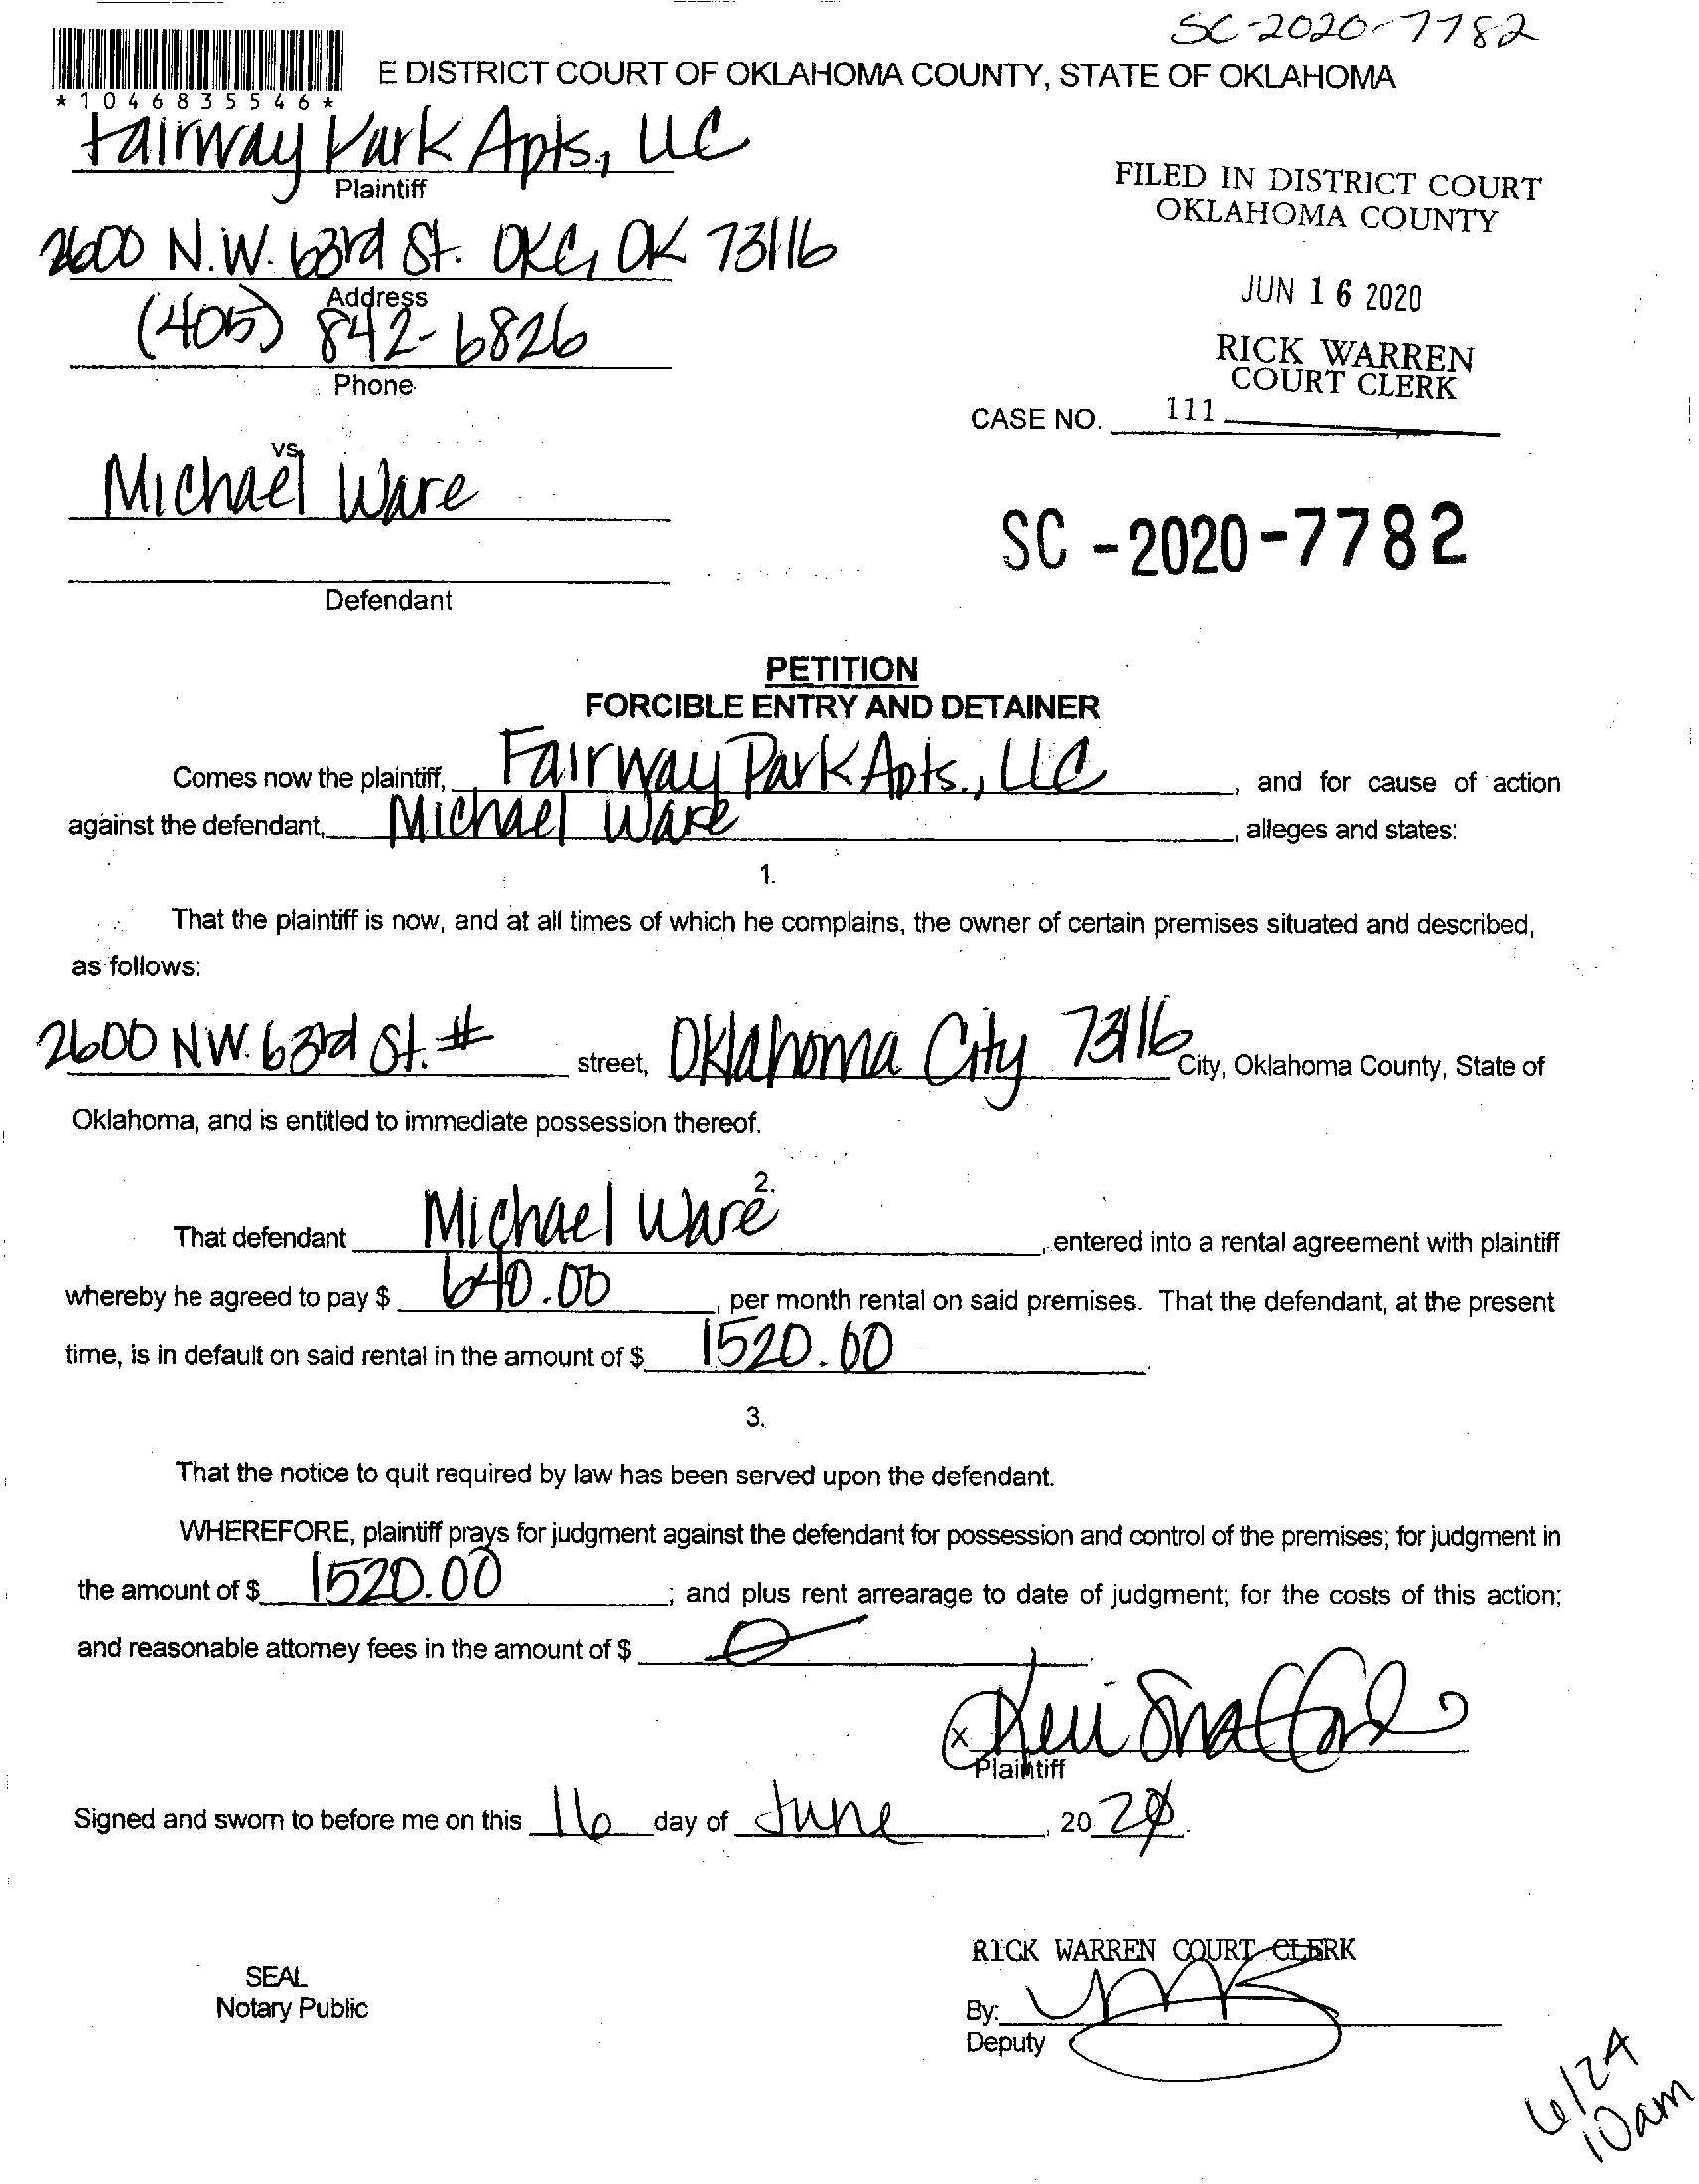 SC-2020-7782
E DISTRICT COURT OF OKLAHOMA COUNTY, STATE OF OKLAHOMA
*1046835546*
Fairway Park Apts., LLC
Plaintiff
FILED IN DISTRICT COURT
OKLAHOMA COUNTY
2600 N.W. 63rd St. OKC, OK 73116
Address
JUN 16 2020
(405) 842-6826
Phone
RICK WARREN
COURT CLERK
CASE NO. 111
vs.
Michael Ware
SC-2020-7782
Defendant
PETITION
FORCIBLE ENTRY AND DETAINER
Comes now the plaintiff, Fairway Park Apts., LLC, and for cause of action
against the defendant, Michael Ware, alleges and states:
1.
That the plaintiff is now, and at all times of which he complains, the owner of certain premises situated and described,
as follows:
2600 NW. 63rd St. # street, Oklahoma City 73116 City, Oklahoma County, State of
Oklahoma, and is entitled to immediate possession thereof.
2.
That defendant Michael Ware, entered into a rental agreement with plaintiff
whereby he agreed to pay $ 640.00, per month rental on said premises. That the defendant, at the present
time, is in default on said rental in the amount of $ 1520.00.
3.
That the notice to quit required by law has been served upon the defendant.
WHEREFORE, plaintiff prays for judgment against the defendant for possession and control of the premises; for judgment in
the amount of $ 1520.00; and plus rent arrearage to date of judgment; for the costs of this action;
and reasonable attorney fees in the amount of $
X
Plaintiff
Signed and sworn to before me on this 16 day of June, 20 20.
RICK WARREN COURT CLERK
SEAL
Notary Public
By:
Deputy
6/24
10am